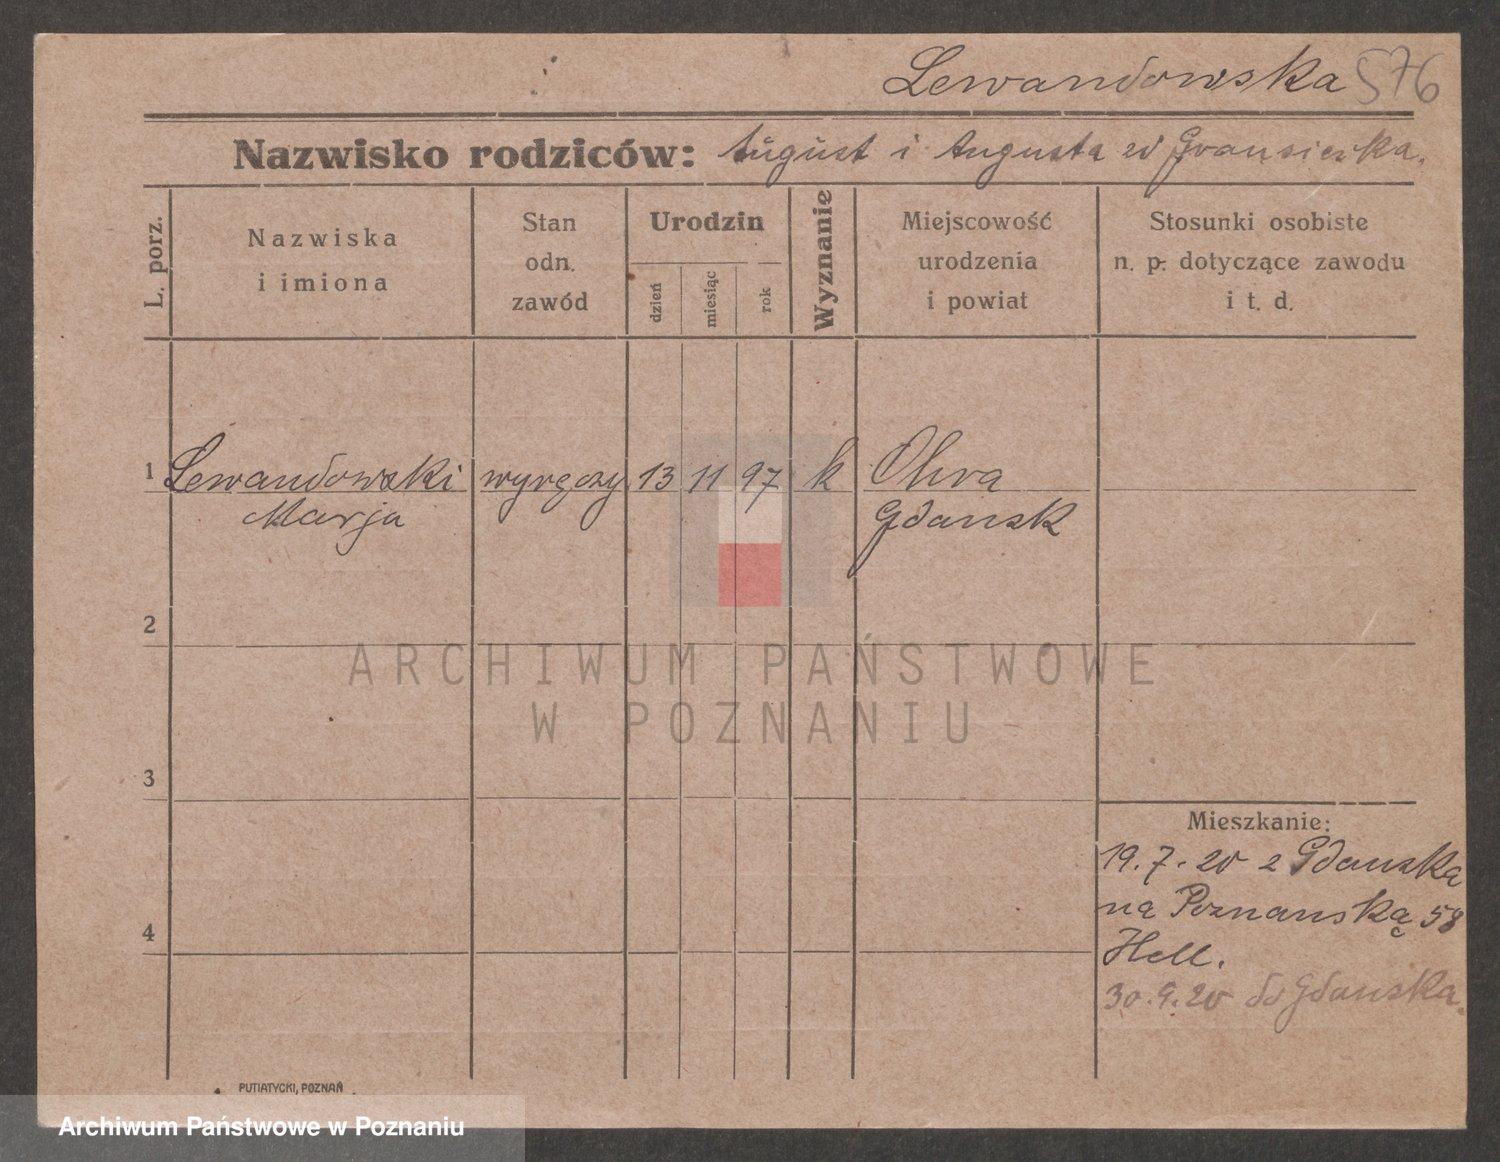 Lewandowska 576
Nazwisko rodziców: August i Augusta zd
L. porz.
Nazwiska
i imiona
Stan
odn.
zawód
Urodzin
dzień
miesiąc
rok
Wyznanie
Miejscowość
urodzenia
i powiat
Stosunki osobiste
n. p. dotyczące zawodu
i t. d.
1 Lewandowski 13 11 97 k
Marja Gdansk
2
ARCHIWUM PAŃSTWOWE
W POZNANIU
3
Mieszkanie:
19.7.20 z Gdanska
na Poznanską 58
4
Hell.
30.9.20 do Gdanska.
PUTIATYCKI, POZNAŃ
Archiwum Państwowe w Poznaniu